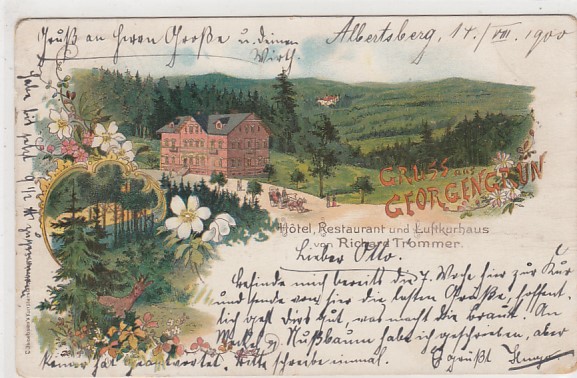 Albertsberg, 14./VIII. 1900
Gruß an Herrn Große u. deinen
Wirth.
GRUSS aus
GEORGENGRÜN
Hôtel, Restaurant und Luftkurhaus
von Richard Trommer.
Lieber Otto.
Befinde mich bereits die 7. Woche hier zur Kur
und sende von hier die besten Grüße, hoffent-
lich geht Dirs gut, was macht die Braut. An
Nußbaum habe ich geschrieben, aber
keiner hat geantwortet. Bitte schreibe einmal.
Es grüßt
Habe bis jetzt
zugenommen